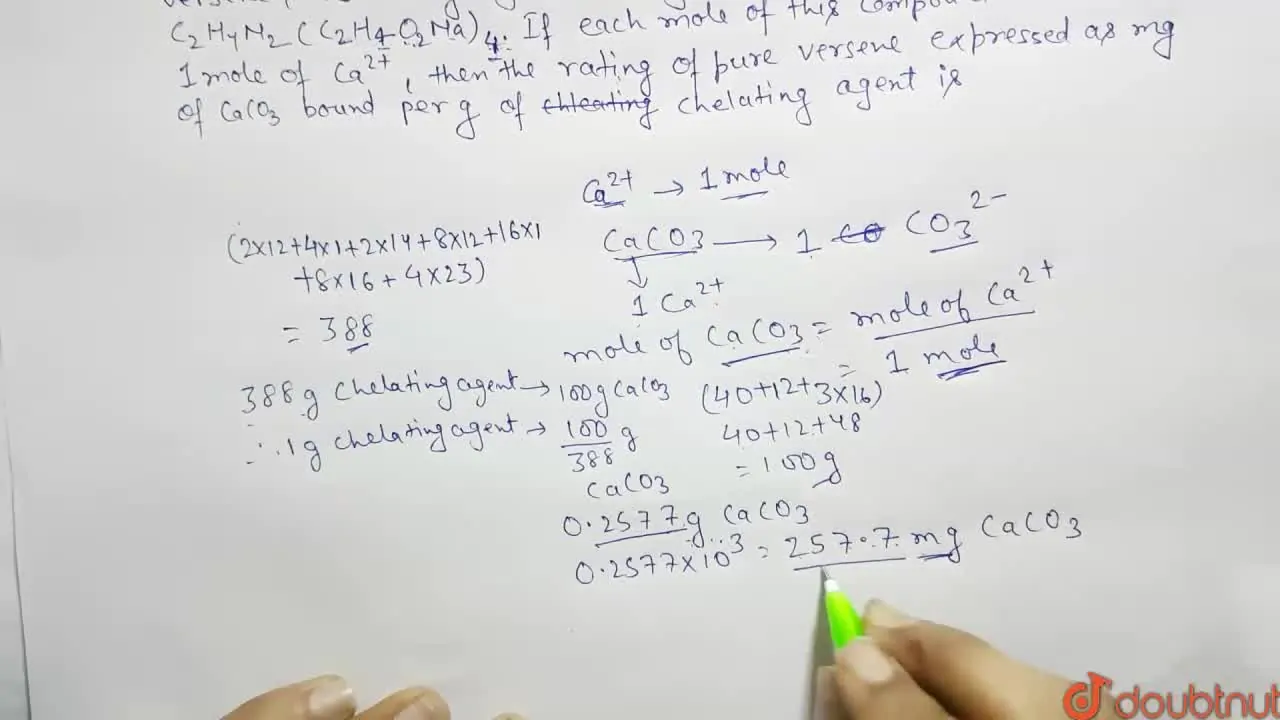 C2H4N2 (C2H4O2Na)4. If each mole of this
1 mole of Ca2+, then the rating of pure versene expressed as mg
of CaCO3 bound per g of chleating chelating agent is
Ca2+ → 1 mole
(2x12+4x1+2x14+8x12+16x1
+8x16+4x23)
= 388
CaCO3 → 1 CO CO3 2-
↓
1 Ca2+
mole of CaCO3 = mole of Ca2+
= 1 mole
388g Chelating agent → 100g CaCO3
∴ 1g chelating agent → 100/388 g
CaCO3
(40+12+3x16)
40+12+48
= 100g
0.2577g CaCO3
0.2577x10^3 = 257.7 mg CaCO3
doubtnut